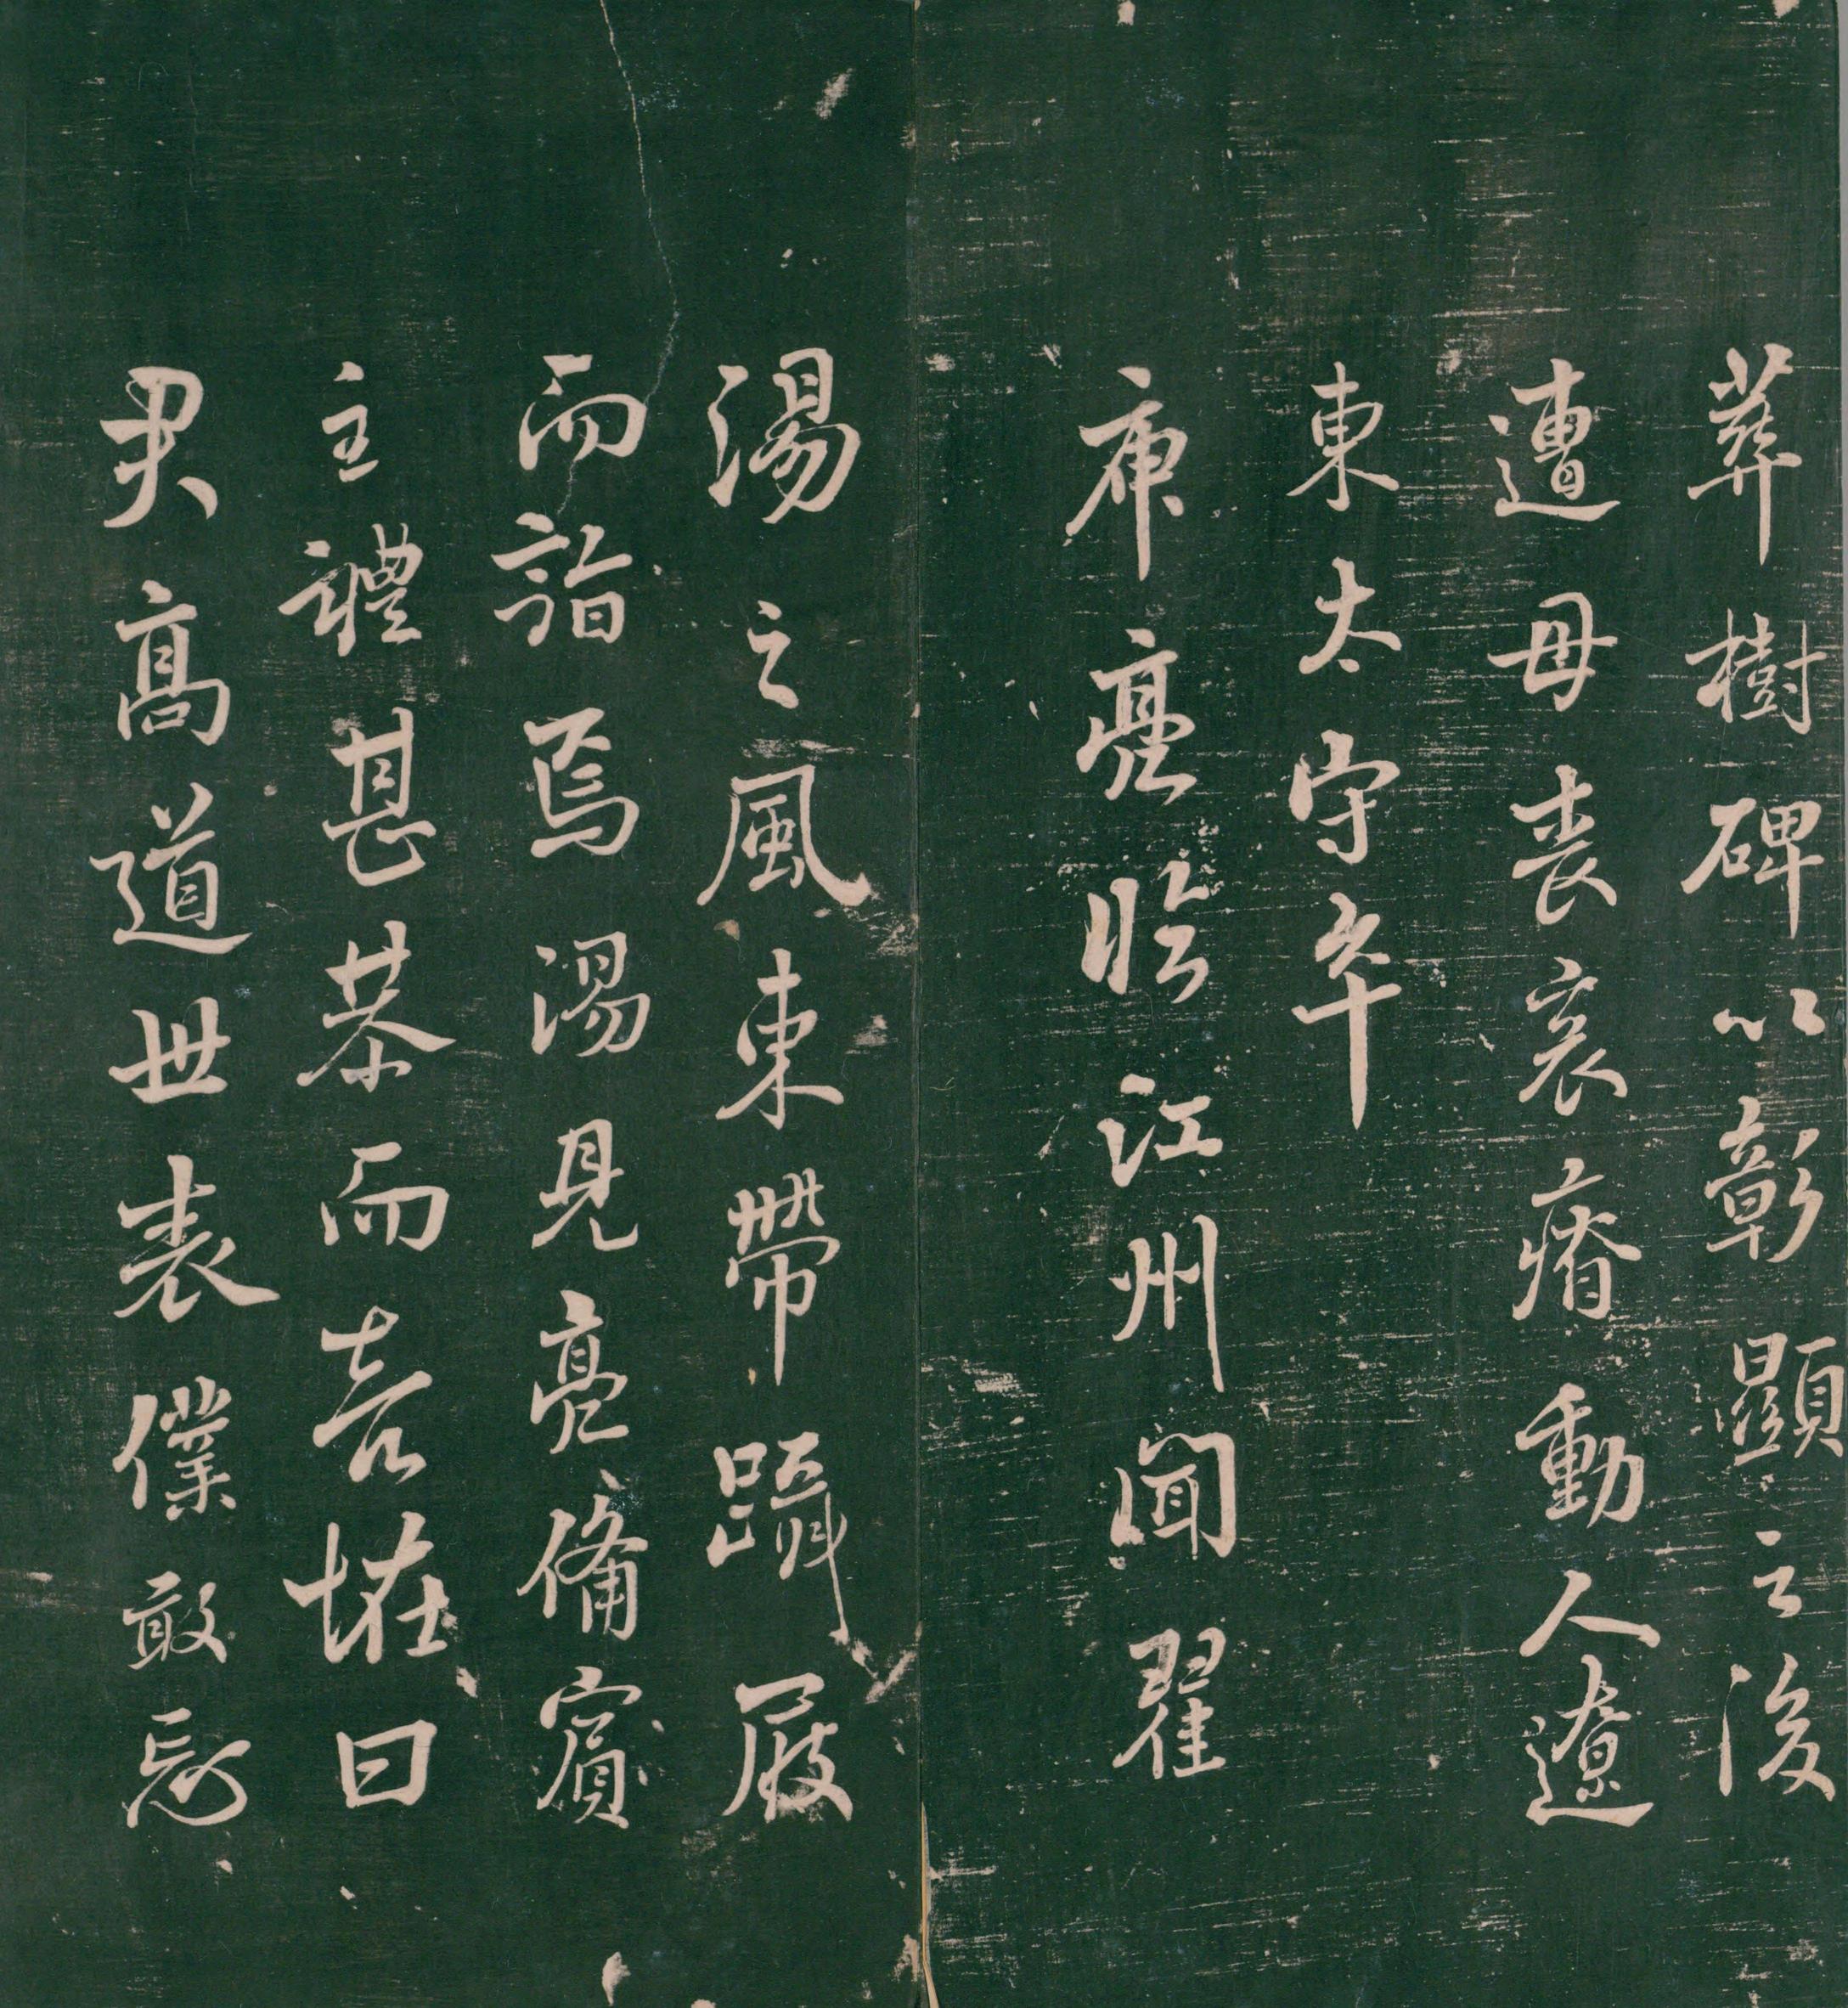 葬樹碑以彰顯之後
遭母喪哀瘠動人遼
東太守卒
庾亮臨江州聞翟
湯之風束帶躡屐
而詣焉湯見亮備賓
主禮甚恭而言怪曰
君高道世表僕敢忘